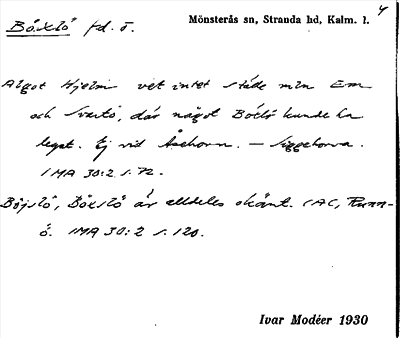 Böxlö fd. ö. Mönsterås sn, Stranda hd, Kalm. l. 4
Algot Hjelm vet intet ställe mln Em
och Svartö, där något Böxlö kunde ha
legat. Ej vid Åsehorn. – Siggehorva.
IMA 30:2 s. 72.
Böjslö, Böxlö är alldeles okänt. CAC, Runn-
ö. IMA 30:2 s. 120.
Ivar Modéer 1930